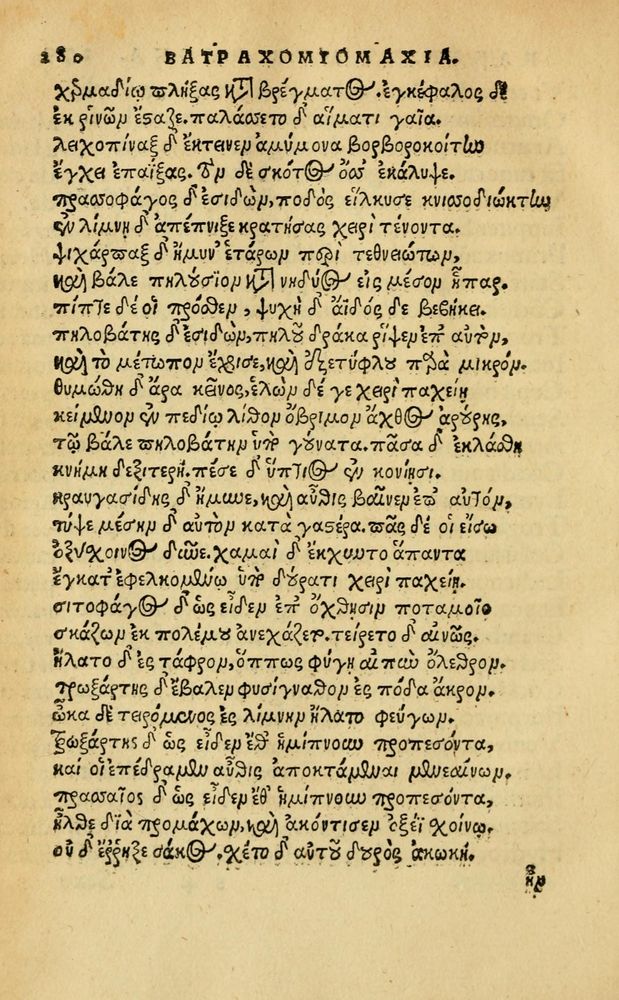 280 ΒΑΤΡΑΧΟΜΥΟΜΑΧΙΑ.
χερμαδίῳ πλήξας κατὰ βρέγματος. ἐγκέφαλος δὲ
ἐκ ῥινῶν ἔσταζε. παλάσσετο δ' αἵματι γαῖα.
λειχοπίναξ δ' ἔκτεινεν ἀμύμονα βορβοροκοίτην
ἔγχει ἐπαΐξας. τὸν δὲ σκότος ὄσσε ἐκάλυψε.
πρασσοφάγος δ' ἐσιδὼν, ποδὸς εἵλκυσε κνισσοδιώκτην
ἐν λίμνῃ δ' ἀπέπνιξε κρατήσας χειρὶ τένοντα.
ψιχάρπαξ δ' ἤμυν' ἑτάρων περὶ τεθνειώτων,
καὶ βάλε πηλούσιον κατὰ νηδύος εἰς μέσον ἧπαρ.
πίπτε δέ οἱ πρόσθεν, ψυχὴ δ' ἄϊδός δε βεβήκει.
πηλοβάτης δ' ἐσιδὼν, πηλοῦ δράκα ῥίψεν ἐπ' αὐτὸν,
καὶ τὸ μέτωπον ἔχρισε, καὶ ἐξετύφλου παρὰ μικρόν.
θυμώθη δ' ἄρα κεῖνος, ἑλὼν δέ γε χειρὶ παχείῃ
κείμενον ἐν πεδίῳ λίθον ὄβριμον ἄχθος ἀρούρης,
τῷ βάλε πηλοβάτην ὑπὸ γούνατα. πᾶσα δ' ἐκλάσθη
κνήμη δεξιτερή. πέσε δ' ὕπτιος ἐν κονίῃσι.
κραυγασίδης δ' ἤμυνε, καὶ αὖθις βαῖνεν ἐπ' αὐτόν,
τύψε μέσην δ' αὐτὸν κατὰ γαστέρα. πᾶς δέ οἱ εἴσω
ὀξύσχοινος δῦνε. χαμαὶ δ' ἔκχυντο ἅπαντα
ἔγκατ' ἐφελκομένῳ ὑπὸ δούρατι χειρὶ παχείῃ.
σιτοφάγος δ' ὡς εἶδεν ἐπ' ὄχθῃσιν ποταμοῖο
σκάζων ἐκ πολέμου ἀνεχάζετ. τείρετο δ' αἰνῶς.
ἥλατο δ' ἐς τάφρον, ὅππως φύγῃ αἰπὺν ὄλεθρον.
τρωξάρτης δ' ἔβαλεν φυσίγναθον ἐς πόδα ἄκρον.
ὦκα δὲ τειρόμενος ἐς λίμνην ἥλατο φεύγων.
τρωξάρτης δ' ὡς εἶδεν ἔθ' ἡμίπνουν προπεσόντα,
καί οἱ ἐπέδραμεν αὖθις ἀποκτάμεναι μενεαίνων.
πρασσαῖος δ' ὡς εἶδεν ἔθ' ἡμίπνουν προπεσόντα,
ἦλθε διὰ προμάχων, καὶ ἀκόντισεν ὀξέϊ σχοίνῳ.
οὐ δ' ἔρρηξε σάκος. σχέτο δ' αὐτοῦ δουρὸς ἀκωκή.
ἦν